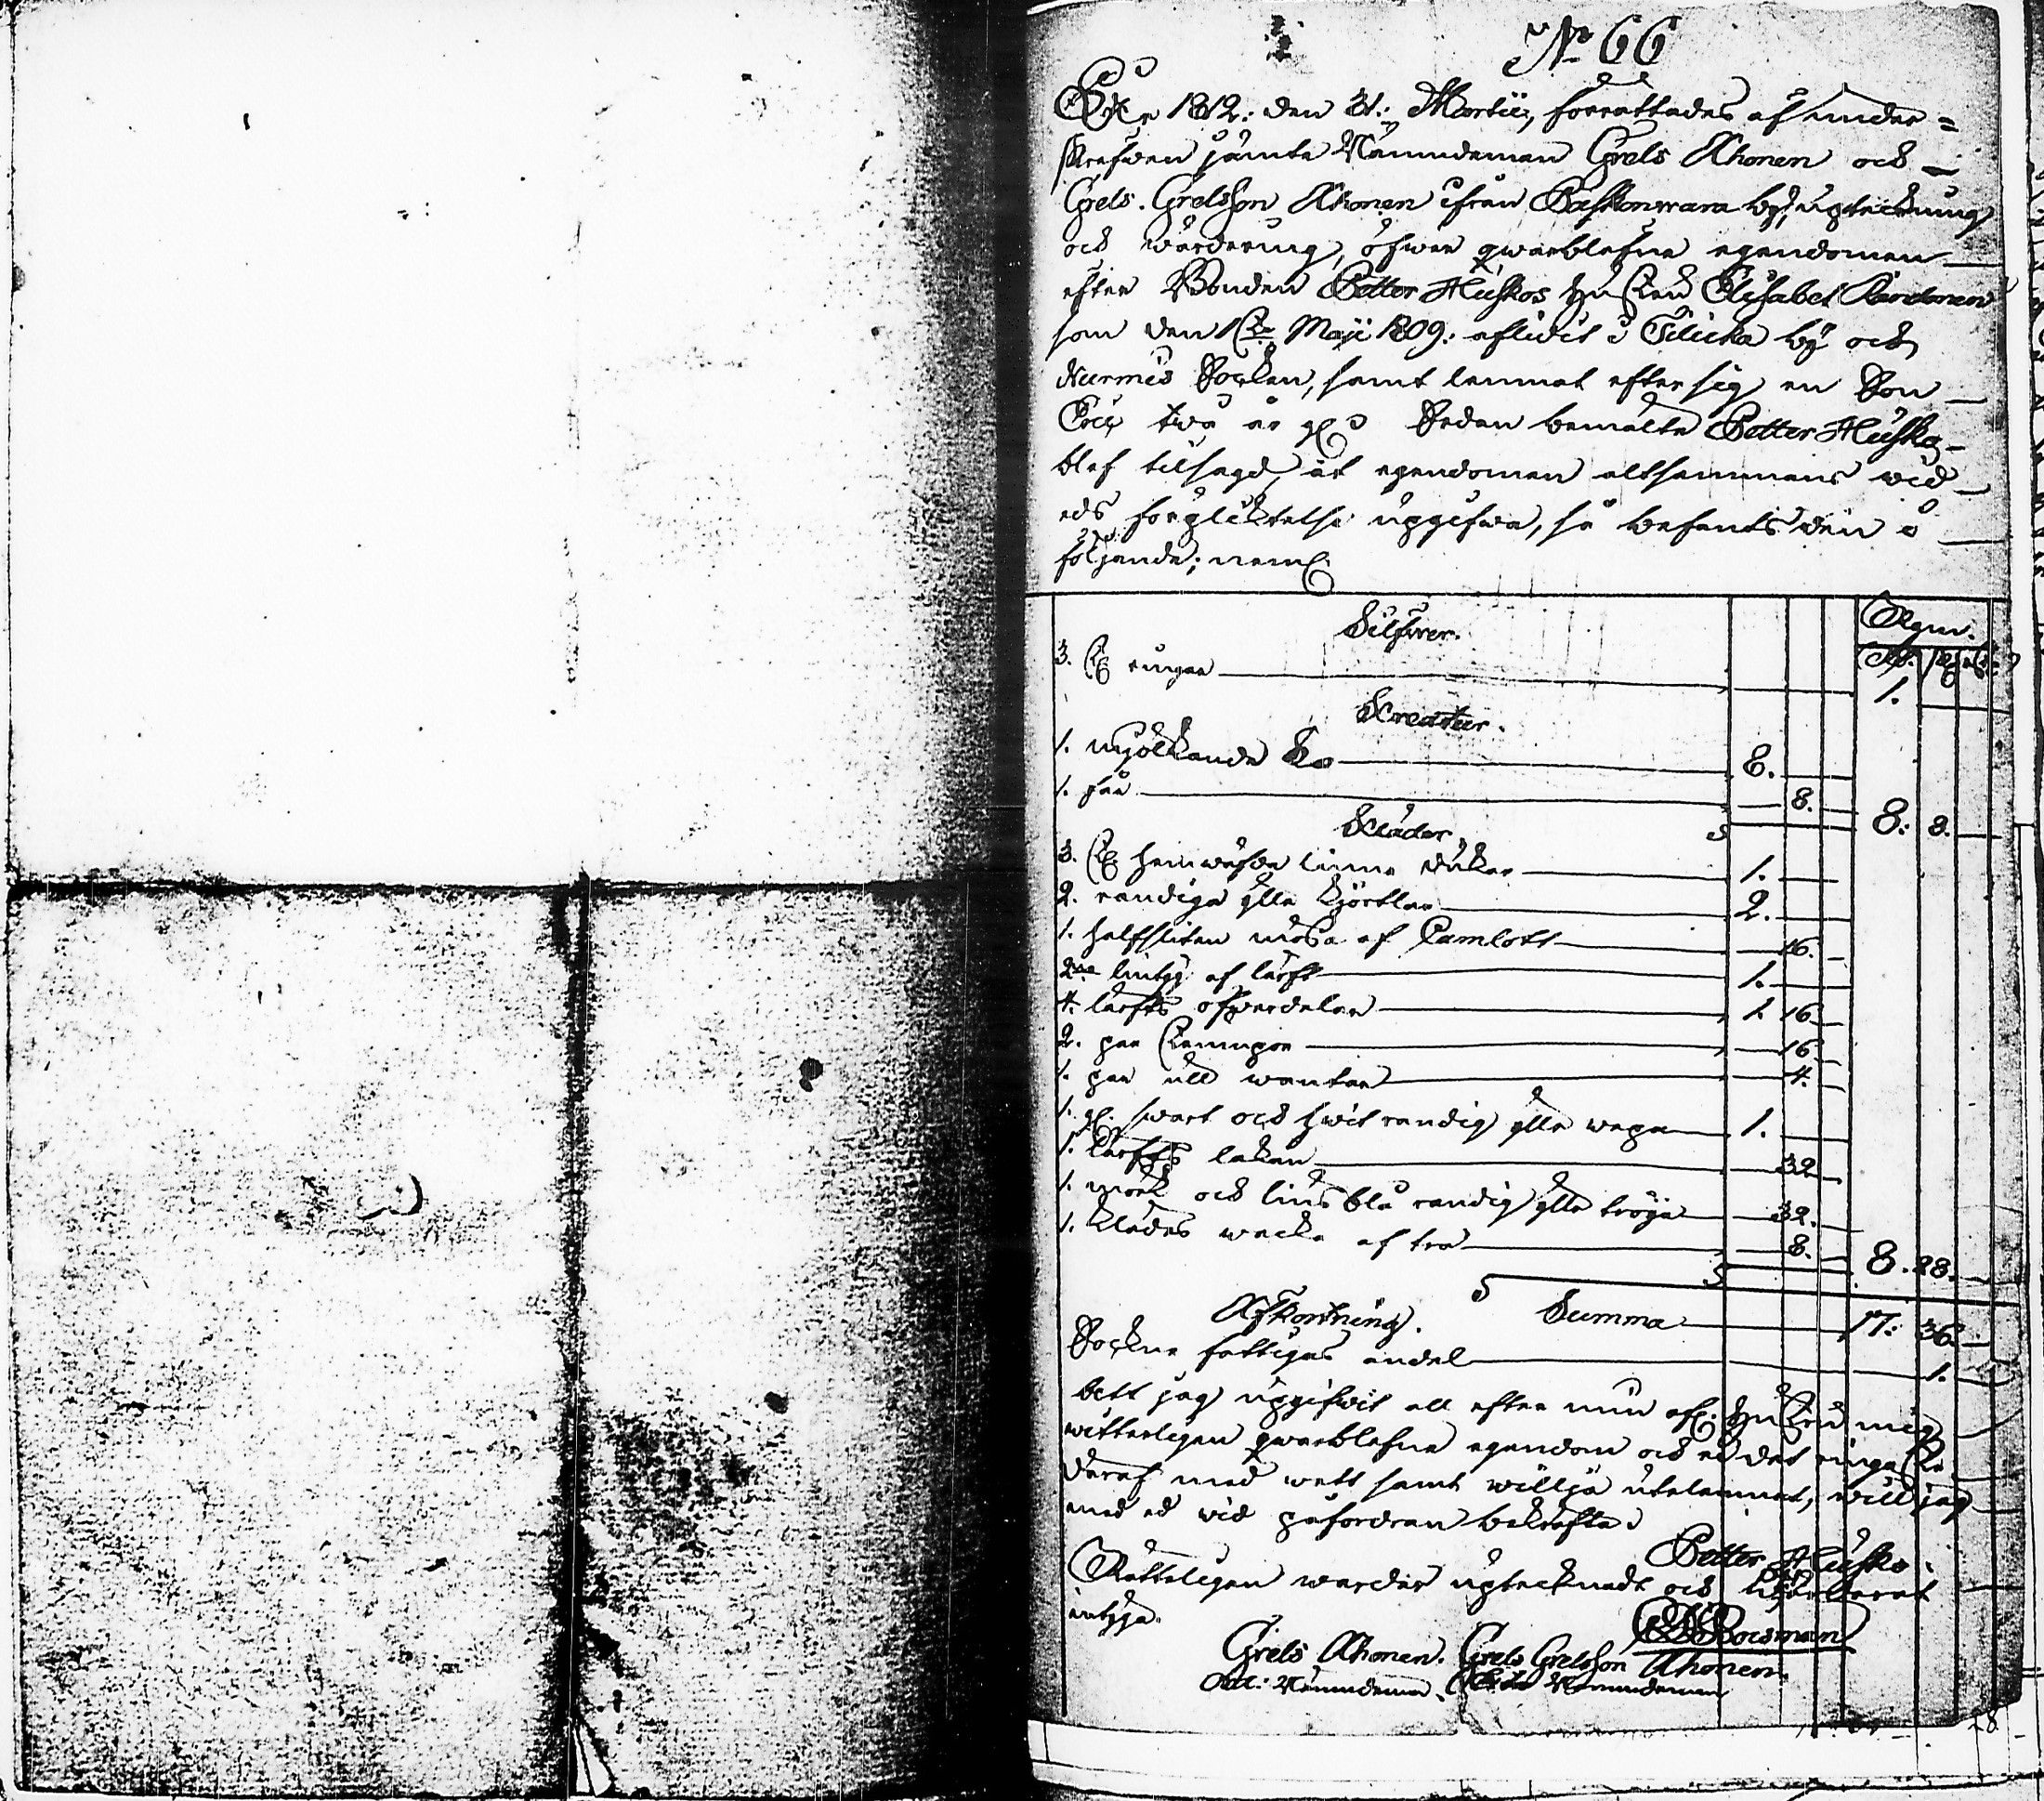 No 66
1812: den 31: Martii, förrättades af under=
skrefwen jämte Nämndeman Grels Ahonen och
Grels Grelsson Ahonen ifrån Paskonwara by, upteckning
och wärdering, öfwer qwarblefne egendomen
efter Bonden Petter Huskos hustru Elisabet
som den 1sta Maji 1809: aflidit i Tilicka by och
Nurmis Socken, samt lemnat efter sig en Son
två år gl: Sedan bemälte Petter Husko
blef tilsagd, at egendomen altsammans wid
eds förpliktelse upgifwa, så befants den i
följande; neml:
Silfwer.
Rgns.
3. st: ringar 1.
Kreatur.
1. mjölkande ko 8.
1. får 8. 8: 8.
Kläder
3. st: hemwäfda linne dukar 1.
2. randiga ylle kjortlar 2.
1. halfsliten mössa af Camlott 16.
2ne lintyg af lärft 1.
4. lärfts öfwerdelar 1. 16.
2. par strumpor 16.
1. par ull wantar 4.
1. gl. swart och hwit randig ylle wepa 1.
1. lärfts lakan 32
1. mörk och lius blå randig ylle tröja 32.
1. klädes wacka af trä 8. 8. 28.
Afkortning. Summa 17: 36.
Sockne fattigas andel 1.
At jag upgifwit all efter min afl: hustru mig
witterligen qwarblefne egendom och ej det ringaste
deraf med wett samt willja utelemnat, will jag
med ed wid påfordran bekräfta
Petter Husko
Rätteligen warder uptecknadt och
intyga.
Bocsman
Grels Ahonen. Grels Grelsson Ahonen.
Nämndeman. Nämndeman